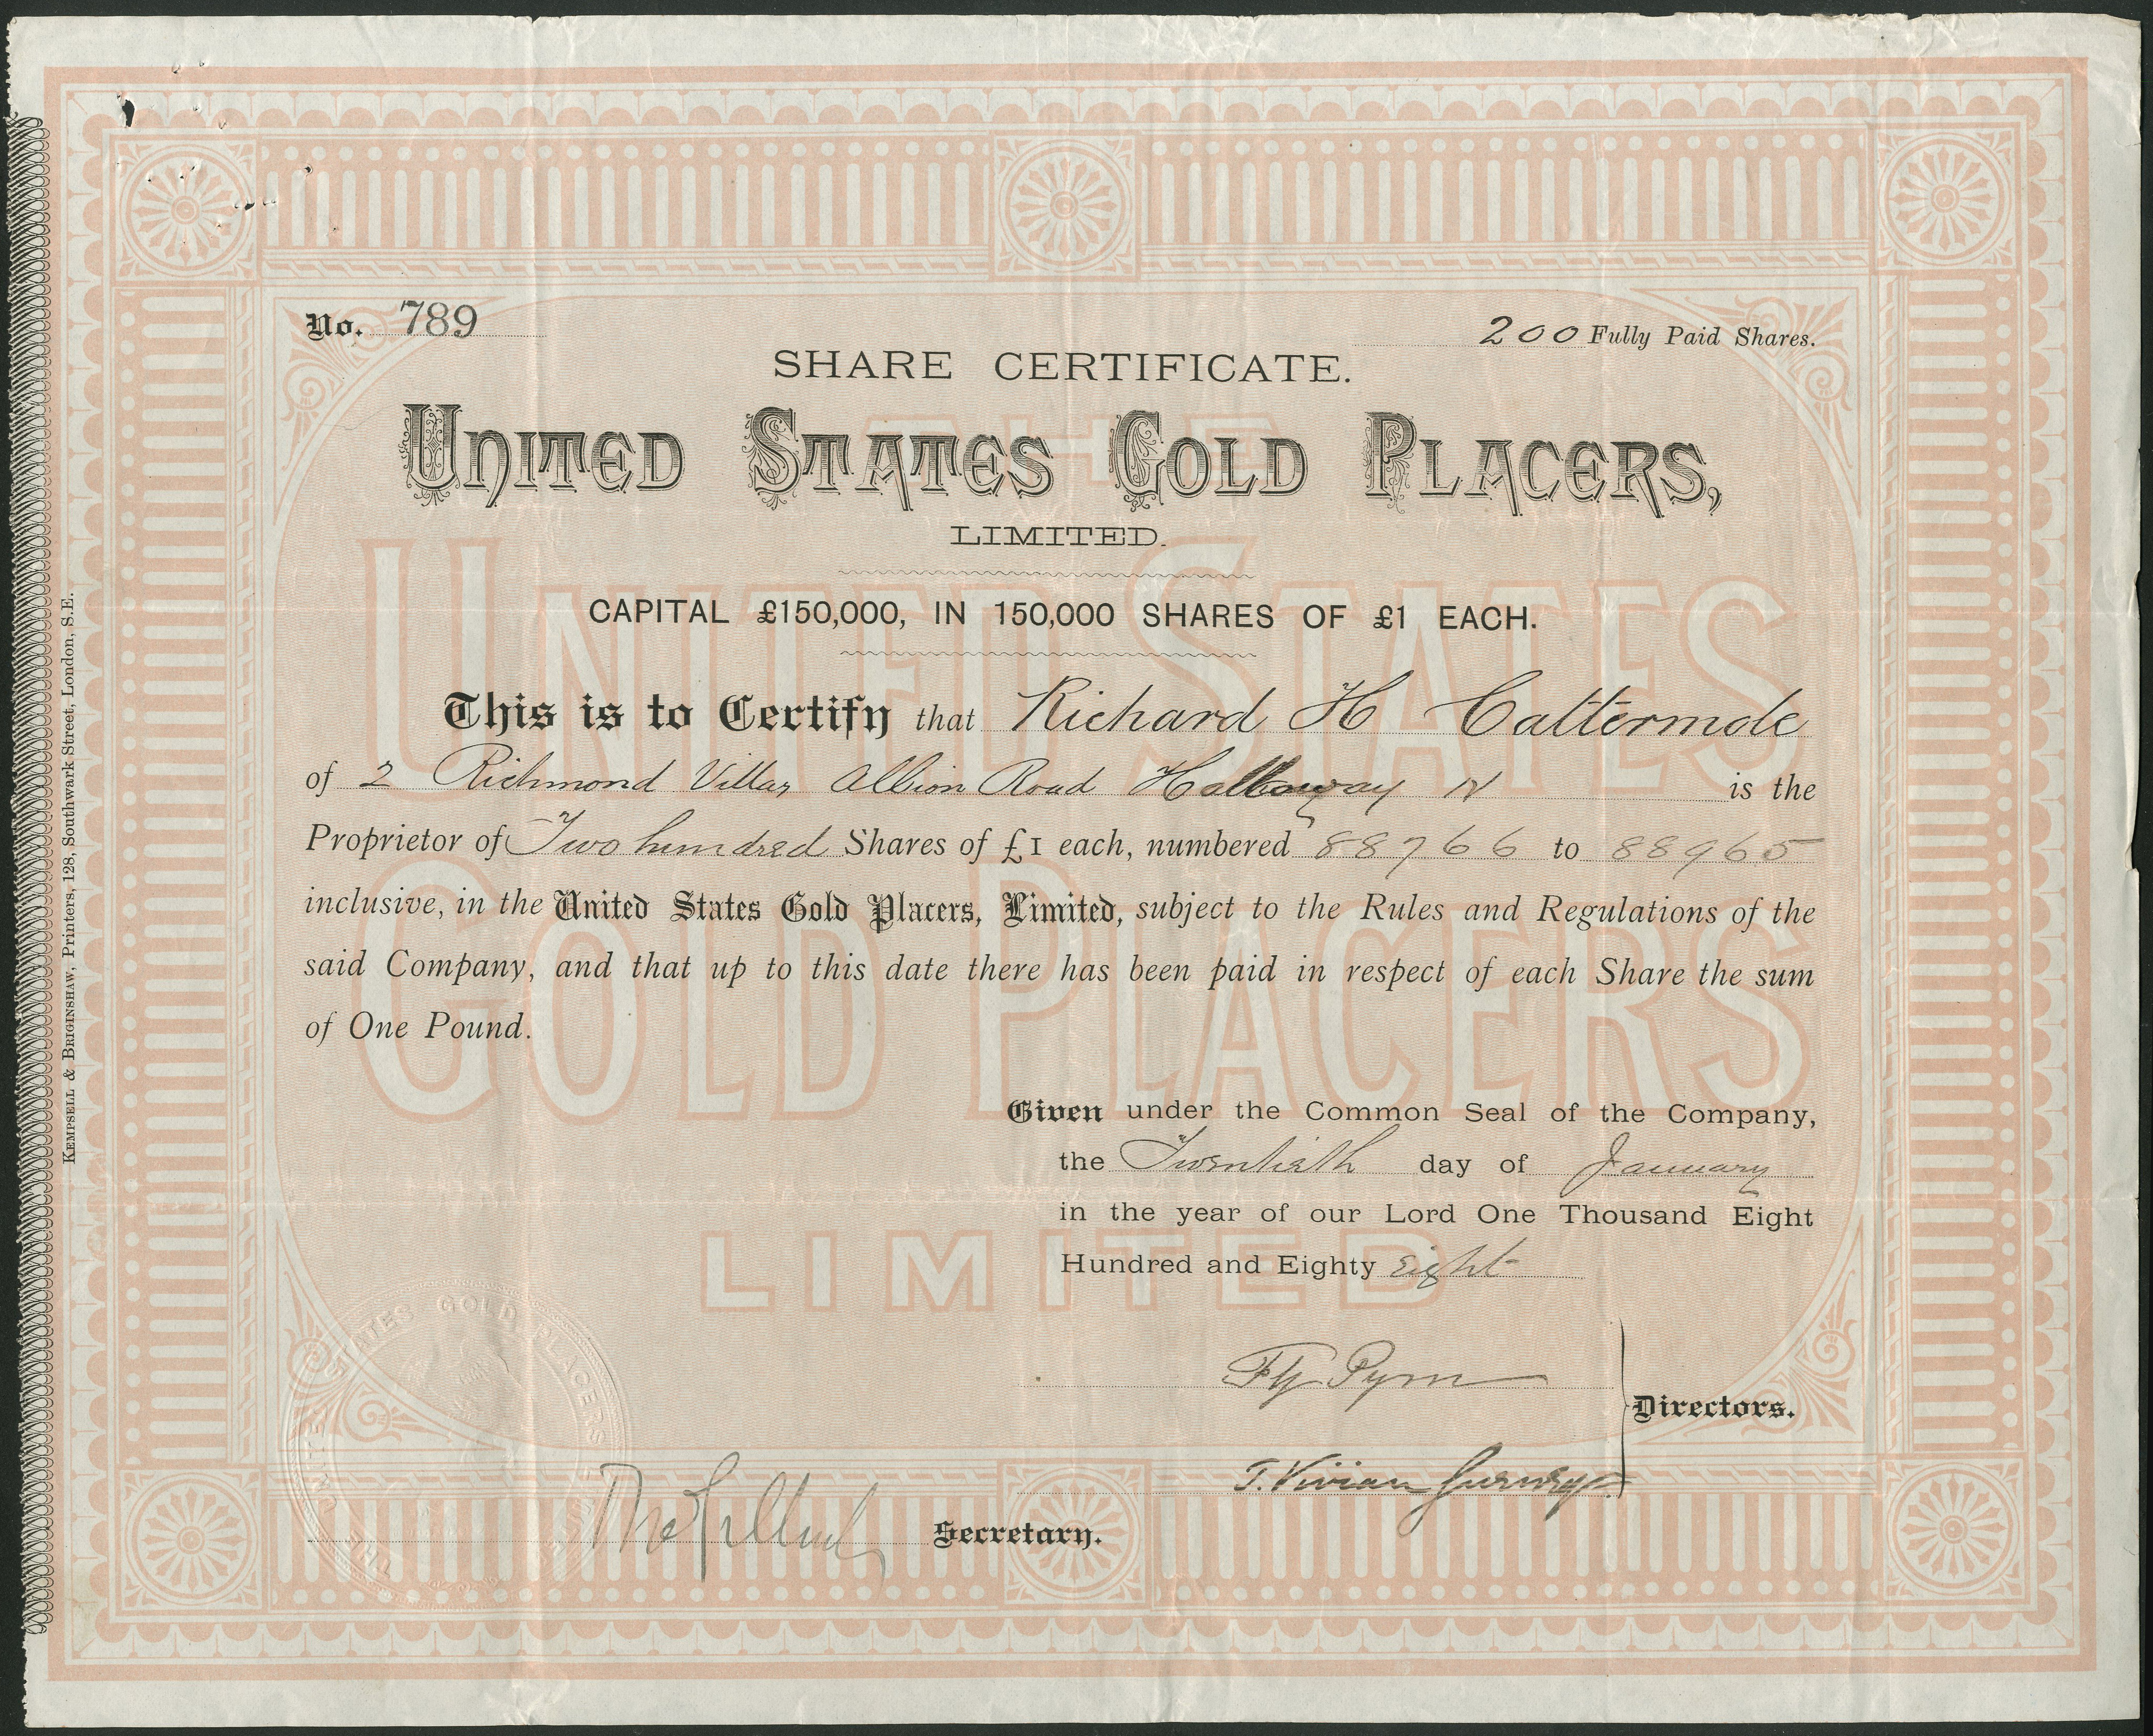 No. 789
200 Fully Paid Shares.
SHARE CERTIFICATE.
THE
UNITED STATES GOLD PLACERS,
LIMITED.
CAPITAL £150,000, IN 150,000 SHARES OF £1 EACH.
This is to Certify that Richard H Cattermole
of 2 Richmond Villas Albion Road Holloway N is the
Proprietor of Two hundred Shares of £1 each, numbered 88766 to 88965
inclusive, in the United States Gold Placers, Limited, subject to the Rules and Regulations of the
said Company, and that up to this date there has been paid in respect of each Share the sum
of One Pound.
UNITED STATES
GOLD PLACERS
LIMITED
Given under the Common Seal of the Company,
the Twentieth day of January
in the year of our Lord One Thousand Eight
Hundred and Eighty Eight
Pym
Directors.
T. Vivian Gurney
Secretary.
THE UNITED STATES GOLD PLACERS
KEMPSELL & BRIGINSHAW, Printers, 128, Southwark Street, London, S.E.